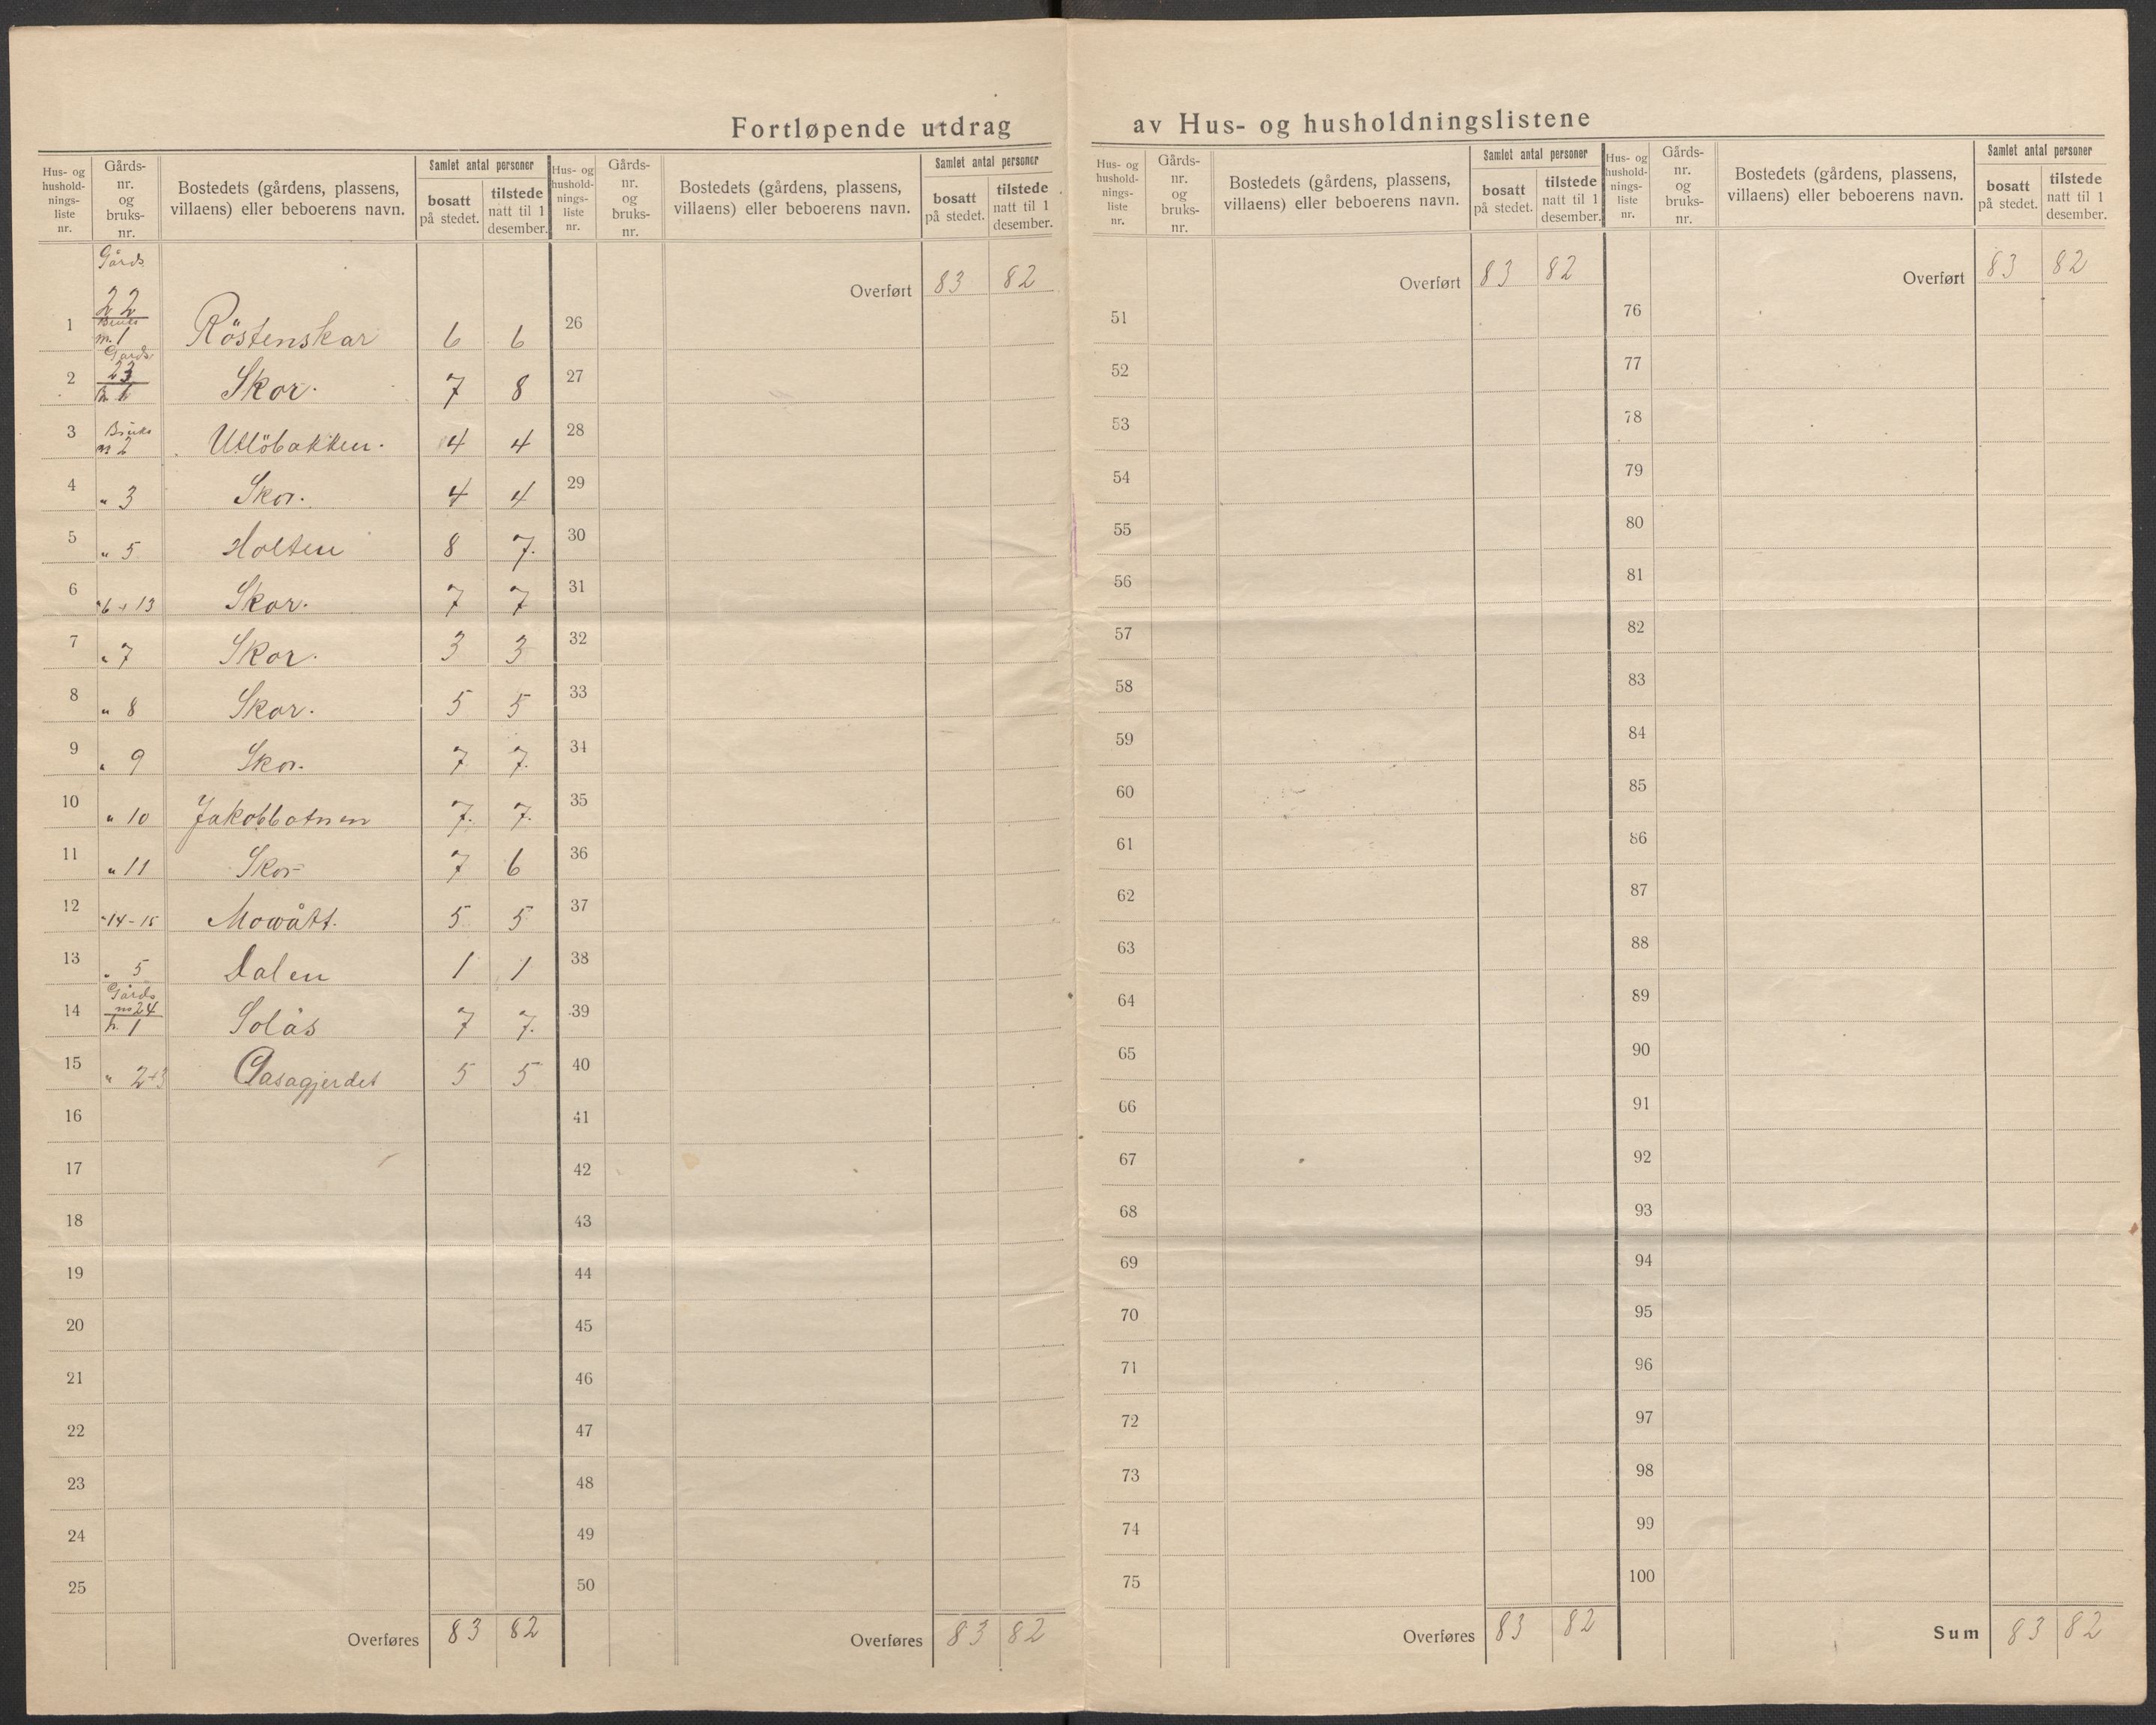 Fortløpende utdrag av Hus- og husholdningslistene
Hus- og hushold-nings-liste nr. Gårds-nr. og bruks-nr. Bostedets (gårdens, plassens, villaens) eller beboerens navn. Samlet antal personer bosatt på stedet. tilstede natt til 1 desember.
Gårds
22
Bruks
1 nr. 1 Röstenskar 6 6
Gårds
23
2 Skor. 7 8
Bruks
3 nr 2 Utlöbakken. 4 4
4 " 3 Skor. 4 4
5 " 5 Holten 8 7.
6 " 6 + 13 Skor. 7 7
7 " 7 Skor. 3 3
8 " 8 Skor. 5 5
9 " 9 Skor. 7 7.
10 " 10 Jakobbotnen 7. 7.
11 " 11 Skor 7 6
12 " 14-15 Mowått. 5 5
13 " 5 Dalen 1 1
Gårds
nr 24
14 b. 1 Solås 7 7.
15 " 2+3 Gasagjerdet 5 5
16
17
18
19
20
21
22
23
24
25
Overføres 83 82
Hus- og hushold-nings-liste nr. Gårds-nr. og bruks-nr. Bostedets (gårdens, plassens, villaens) eller beboerens navn. Samlet antal personer bosatt på stedet. tilstede natt til 1 desember.
Overført 83 82
26
27
28
29
30
31
32
33
34
35
36
37
38
39
40
41
42
43
44
45
46
47
48
49
50
Overføres 83 82
Hus- og hushold-nings-liste nr. Gårds-nr. og bruks-nr. Bostedets (gårdens, plassens, villaens) eller beboerens navn. Samlet antal personer bosatt på stedet. tilstede natt til 1 desember.
Overført 83 82
51
52
53
54
55
56
57
58
59
60
61
62
63
64
65
66
67
68
69
70
71
72
73
74
75
Overføres 83 82
Hus- og hushold-nings-liste nr. Gårds-nr. og bruks-nr. Bostedets (gårdens, plassens, villaens) eller beboerens navn. Samlet antal personer bosatt på stedet. tilstede natt til 1 desember.
Overført 83 82
76
77
78
79
80
81
82
83
84
85
86
87
88
89
90
91
92
93
94
95
96
97
98
99
100
Sum 83 82